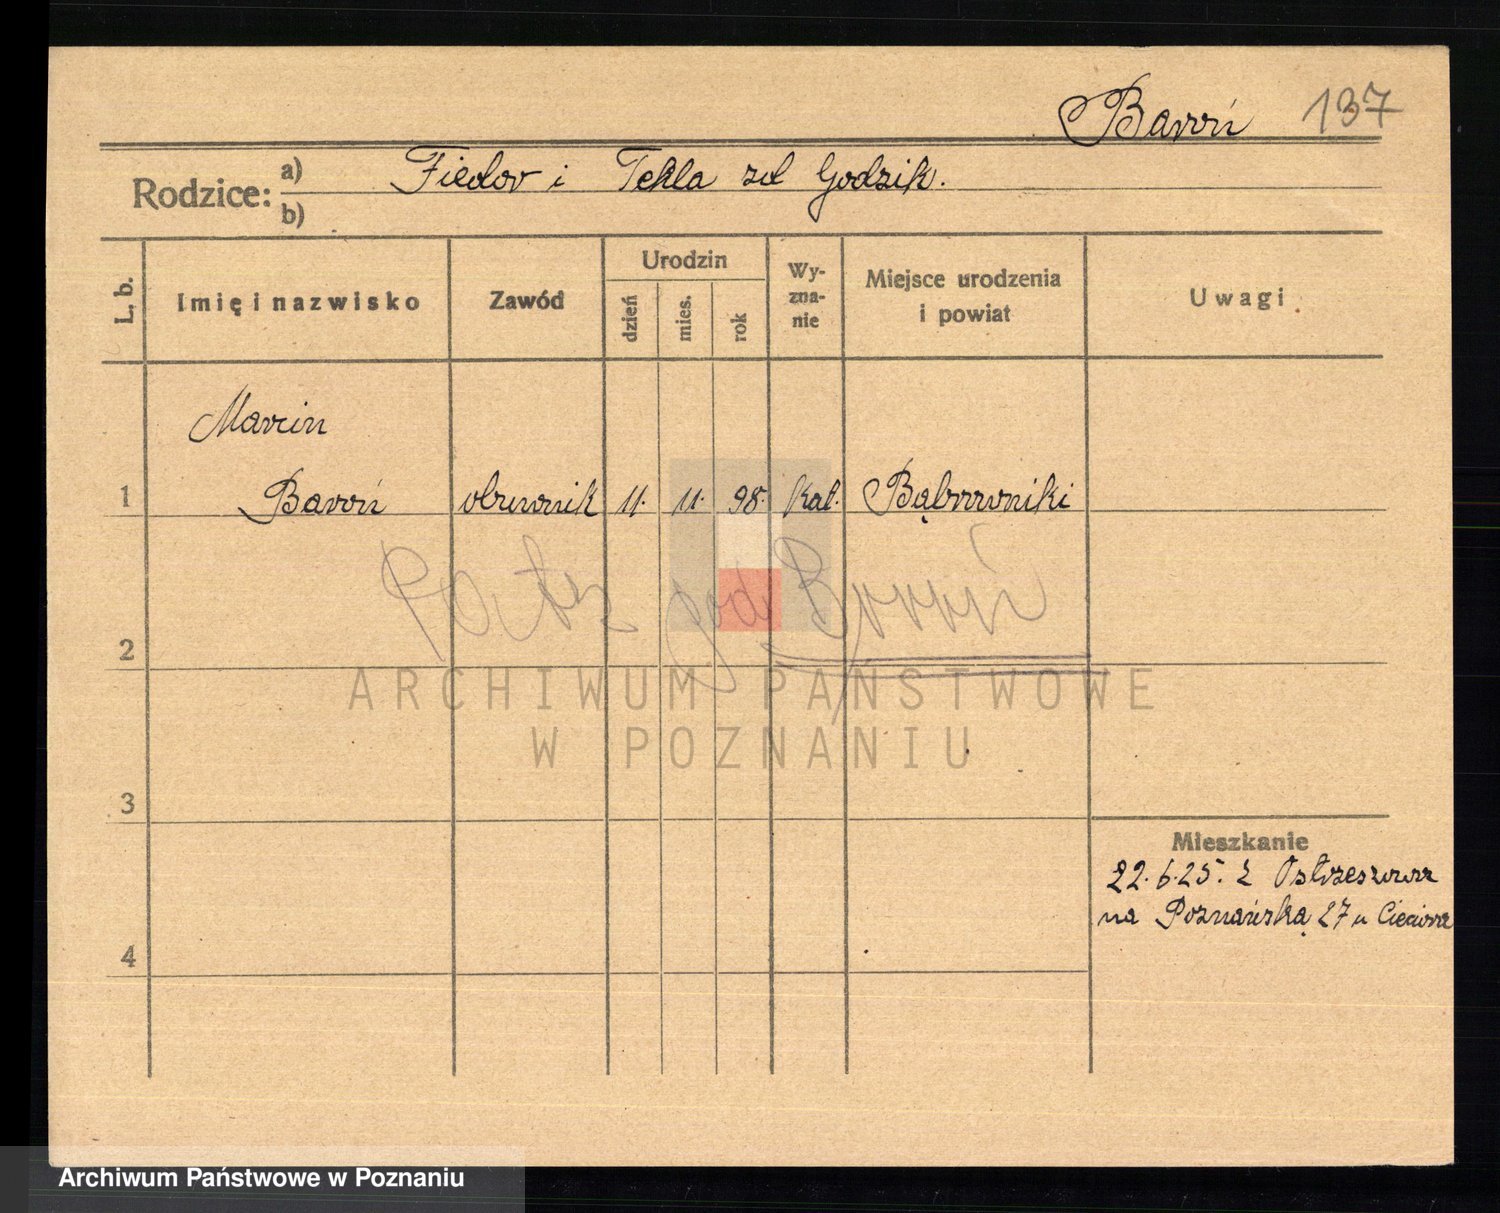 Baroń 137
Rodzice: a) Fiedor i Tekla zd Godzik.
b)
L. b.
Imię i nazwisko
Zawód
Urodzin
dzień
mies.
rok
Wy-
zna-
nie
Miejsce urodzenia
i powiat
Uwagi
Marcin
1 Baroń obuwnik 11. 11. 98. kat. Bąbrowniki
Patrz pod
2
ARCHIWUM PAŃSTWOWE
W POZNANIU
3
Mieszkanie
22.6.25. z Ostrzeszowa
na Poznańską 27 u
4
Archiwum Państwowe w Poznaniu